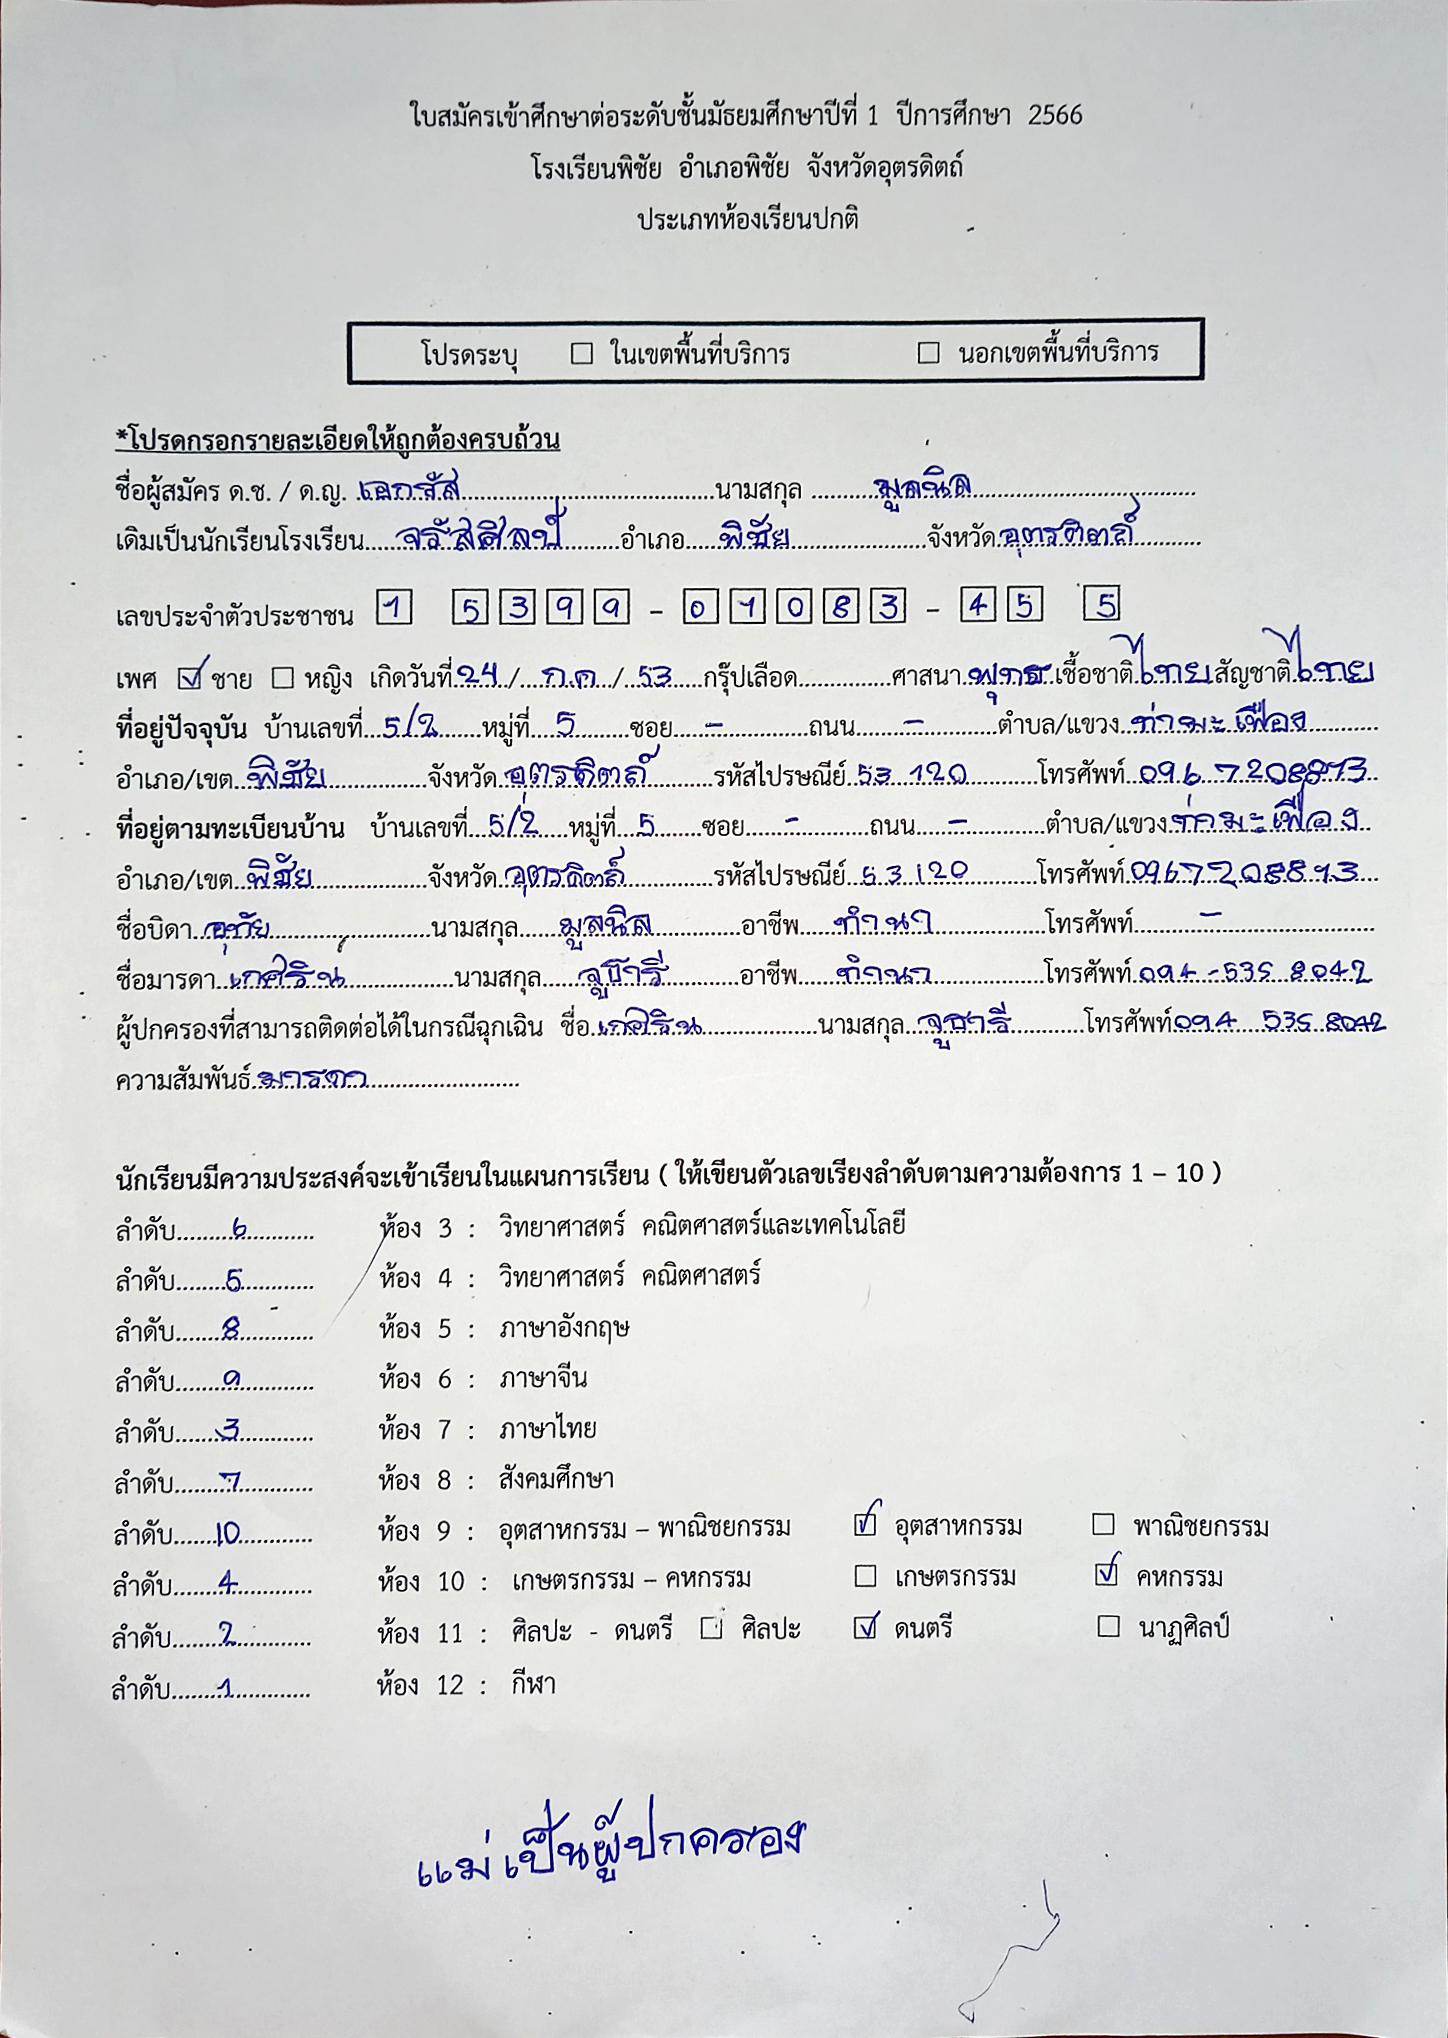 ใบสมัครเข้าศึกษาต่อระดับชั้นมัธยมศึกษาปีที่ 1 ปีการศึกษา 2566
โรงเรียนพิชัย อำเภอพิชัย จังหวัดอุตรดิตถ์
ประเภทห้องเรียนปกติ
โปรดระบุ ☐ ในเขตพื้นที่บริการ ☐ นอกเขตพื้นที่บริการ
*โปรดกรอกรายละเอียดให้ถูกต้องครบถ้วน
ชื่อผู้สมัคร ด.ช. / ด.ญ. เอกรัส นามสกุล มูลนิล
เดิมเป็นนักเรียนโรงเรียน จรัสศิลป์ อำเภอ พิชัย จังหวัด อุตรดิตถ์
เลขประจำตัวประชาชน 1 5399 - 01083 - 45 5
เพศ ☑ ชาย ☐ หญิง เกิดวันที่ 24 / ก.ค / 53 กรุ๊ปเลือด ศาสนา พุทธ เชื้อชาติ ไทย สัญชาติ ไทย
ที่อยู่ปัจจุบัน บ้านเลขที่ 5/2 หมู่ที่ 5 ซอย - ถนน - ตำบล/แขวง ท่ามะเฟือง
อำเภอ/เขต พิชัย จังหวัด อุตรดิตถ์ รหัสไปรษณีย์ 53120 โทรศัพท์ 096 7208813
ที่อยู่ตามทะเบียนบ้าน บ้านเลขที่ 5/2 หมู่ที่ 5 ซอย - ถนน - ตำบล/แขวง ท่ามะเฟือง
อำเภอ/เขต พิชัย จังหวัด อุตรดิตถ์ รหัสไปรษณีย์ 53120 โทรศัพท์ 0967208813
ชื่อบิดา อุทัย นามสกุล มูลนิล อาชีพ ทำนา โทรศัพท์ -
ชื่อมารดา เกศริน นามสกุล อาชีพ ทำนา โทรศัพท์ 094-535 8042
ผู้ปกครองที่สามารถติดต่อได้ในกรณีฉุกเฉิน ชื่อ เกศริน นามสกุล โทรศัพท์ 094 535 8042
ความสัมพันธ์ มารดา
นักเรียนมีความประสงค์จะเข้าเรียนในแผนการเรียน ( ให้เขียนตัวเลขเรียงลำดับตามความต้องการ 1 – 10 )
ลำดับ 6 ห้อง 3 : วิทยาศาสตร์ คณิตศาสตร์และเทคโนโลยี
ลำดับ 5 ห้อง 4 : วิทยาศาสตร์ คณิตศาสตร์
ลำดับ 8 ห้อง 5 : ภาษาอังกฤษ
ลำดับ 9 ห้อง 6 : ภาษาจีน
ลำดับ 3 ห้อง 7 : ภาษาไทย
ลำดับ 7 ห้อง 8 : สังคมศึกษา
ลำดับ 10 ห้อง 9 : อุตสาหกรรม – พาณิชยกรรม ☑ อุตสาหกรรม ☐ พาณิชยกรรม
ลำดับ 4 ห้อง 10 : เกษตรกรรม – คหกรรม ☐ เกษตรกรรม ☑ คหกรรม
ลำดับ 2 ห้อง 11 : ศิลปะ - ดนตรี ☐ ศิลปะ ☑ ดนตรี ☐ นาฏศิลป์
ลำดับ 1 ห้อง 12 : กีฬา
แม่เป็นผู้ปกครอง